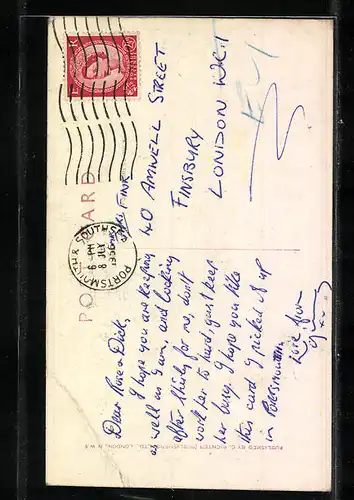 POST CARD
PORTSMOUTH & SOUTHSEA
6 - PM
8 JLY
40 AMWELL STREET
FINSBURY
LONDON W.C.1
Dear Rose & Dick,
I hope you are keeping
as well as I am, and looking
after for me, don't
work her to hard, just keep
her busy. I hope you like
this card I picked it up
in Portsmouth
Love from
PUBLISHED BY C. RICHTER LTD., LONDON, N.W.6